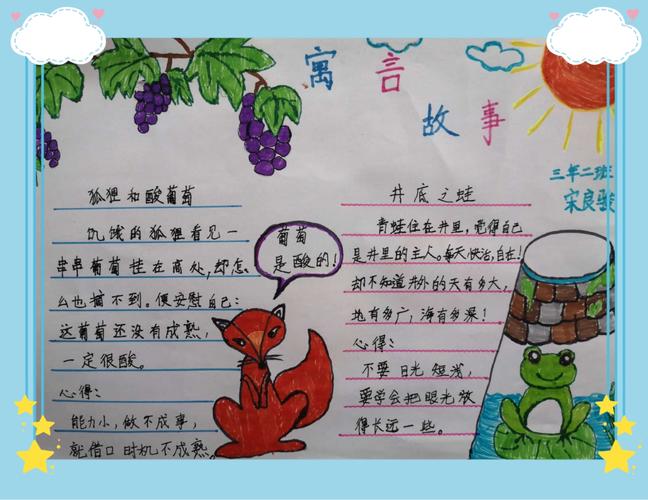 寓言
故事
三年二班
宋良骏
狐狸和酸葡萄
饥饿的狐狸看见一
串串葡萄挂在高处,却怎
么也摘不到。便安慰自己:
这葡萄还没有成熟,
一定很酸。
心得:
能力小,做不成事,
就借口时机不成熟。
葡萄
是酸的!
井底之蛙
青蛙住在井里,觉得自己
是井里的主人。每天快活,自在!
却不知道井外的天有多大,
地有多广,海有多深!
心得:
不要目光短浅,
要学会把眼光放
得长远一些。